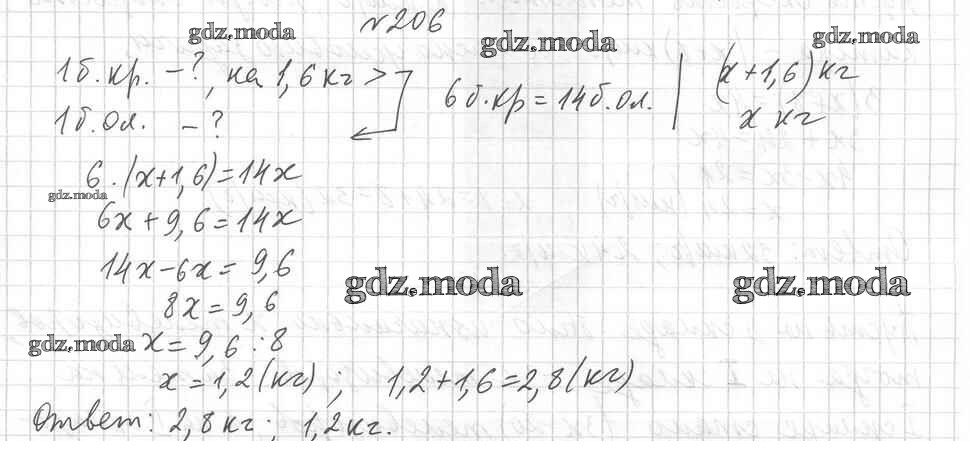 №206
gdz.moda gdz.moda gdz.moda
1 б. кр. – ?, на 1,6 кг > 6 б. кр = 14 б. ол. | (x + 1,6) кг
1 б. ол. – ? x кг
6 · (x + 1,6) = 14x
gdz.moda
6x + 9,6 = 14x
14x – 6x = 9,6
gdz.moda gdz.moda
8x = 9,6
gdz.moda x = 9,6 : 8
x = 1,2 (кг) ; 1,2 + 1,6 = 2,8 (кг)
Ответ: 2,8 кг ; 1,2 кг.